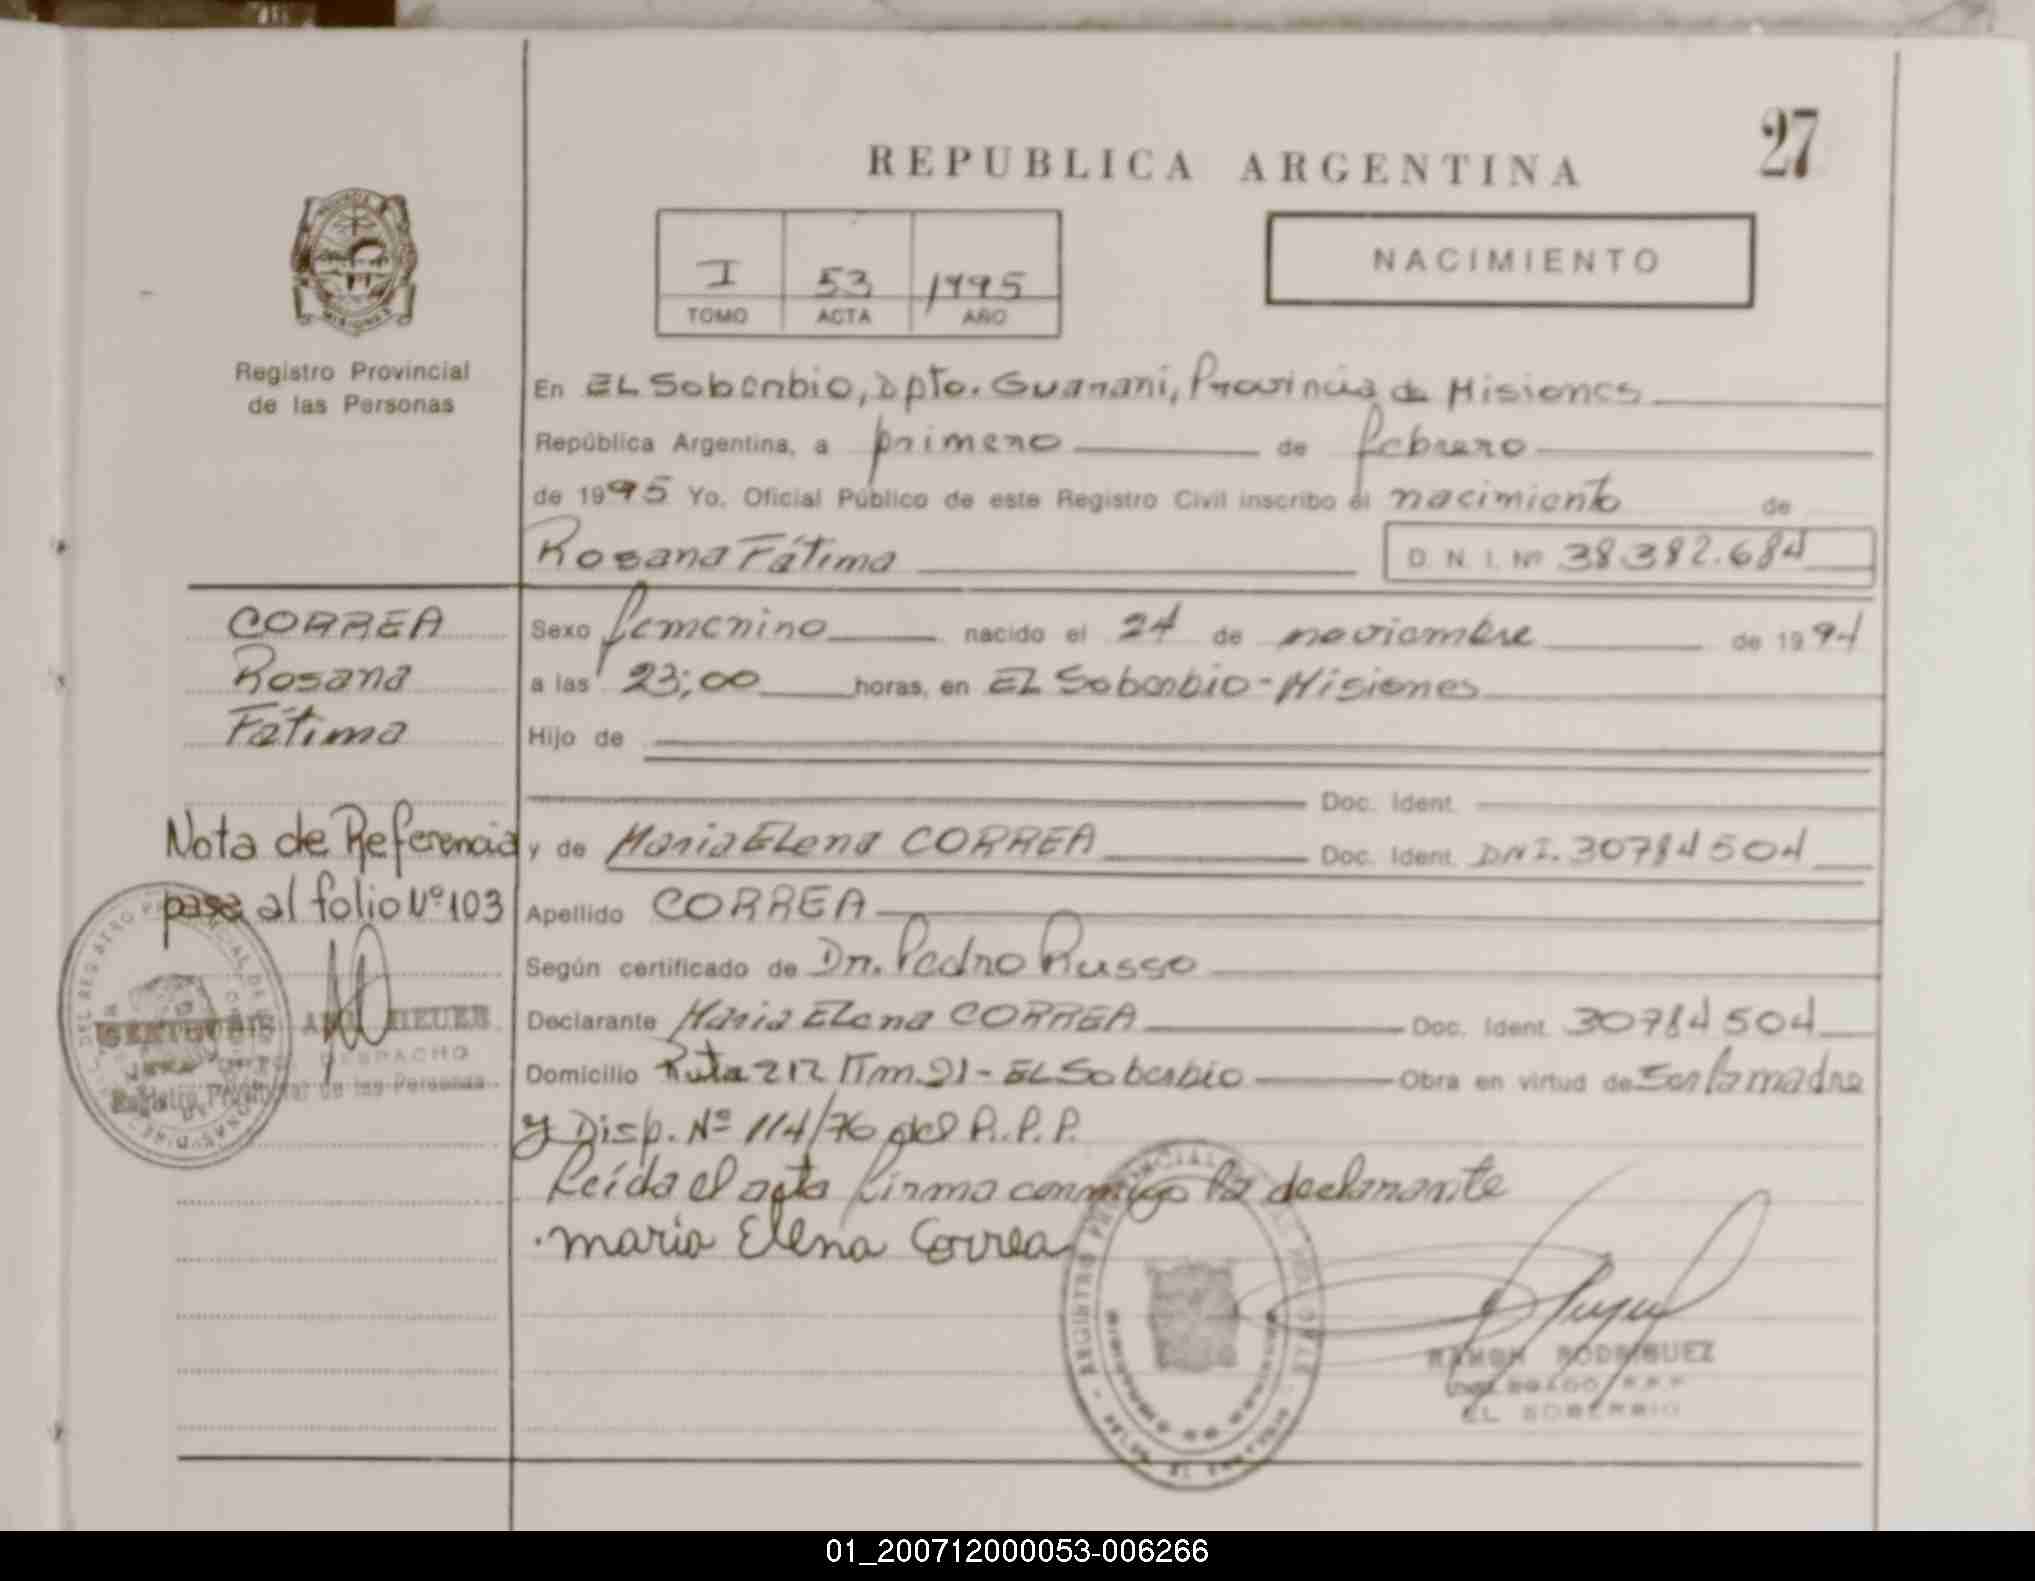 27
REPUBLICA ARGENTINA
NACIMIENTO
I 53 1995
TOMO ACTA AÑO
MISIONES
Registro Provincial
de las Personas
En EL Soberbio, Dpto. Guarani, Provincia de Misiones
República Argentina, a primero de febrero
de 1995 Yo, Oficial Público de este Registro Civil inscribo el nacimiento de
Rosana Fátima D. N. I. Nº 38.382.684
CORREA
Rosana
Fátima
Sexo femenino nacido el 24 de noviembre de 1994
a las 23;00 horas, en EL Soberbio - Misiones
Hijo de
Doc. Ident.
y de Maria Elena CORREA Doc. Ident. DNI. 30784504
Apellido CORREA
Según certificado de Dr. Pedro Russo
Declarante Maria Elena CORREA Doc. Ident. 30784504
Domicilio Ruta 212 Km. 21 - EL Soberbio Obra en virtud de Ser la madre
y Disp. Nº 114/76 del R.P.P.
Leída el acta firma conmigo la declarante
maria Elena Correa
Nota de Referencia
pasa al folio Nº 103
DESPACHO
Registro Provincial de las Personas
RAMON RODRIGUEZ
DELEGADO R.P.P.
EL SOBERBIO
01_200712000053-006266